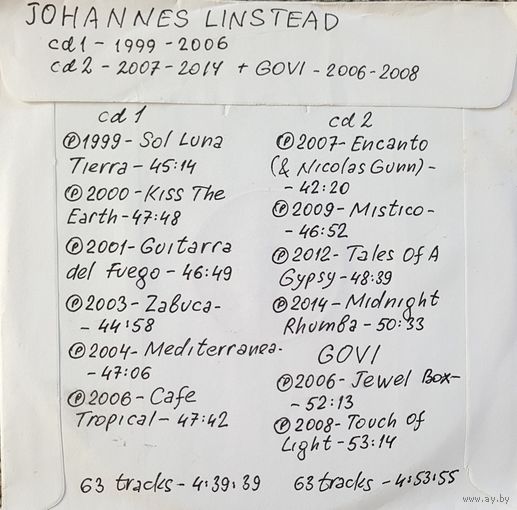 JOHANNES LINSTEAD
cd1 - 1999 - 2006
cd2 - 2007-2014 + GOVI - 2006-2008
cd 1
Ⓟ1999- Sol Luna
Tierra - 45:14
Ⓟ2000 - Kiss The
Earth - 47:48
Ⓟ2001- Guitarra
del Fuego - 46:49
Ⓟ2003- Zabuca-
- 44:58
Ⓟ2004- Mediterranea-
- 47:06
Ⓟ2006 - Cafe
Tropical - 47:42
63 tracks - 4:39:39
cd 2
Ⓟ2007- Encanto
(& Nicolas Gunn) -
- 42:20
Ⓟ2009 - Mistico -
- 46:52
Ⓟ2012- Tales Of A
Gypsy - 48:39
Ⓟ2014 - Midnight
Rhumba - 50:33
GOVI
Ⓟ2006- Jewel Box-
- 52:13
Ⓟ2008- Touch Of
Light - 53:14
63 tracks - 4:53:55
www.ay.by